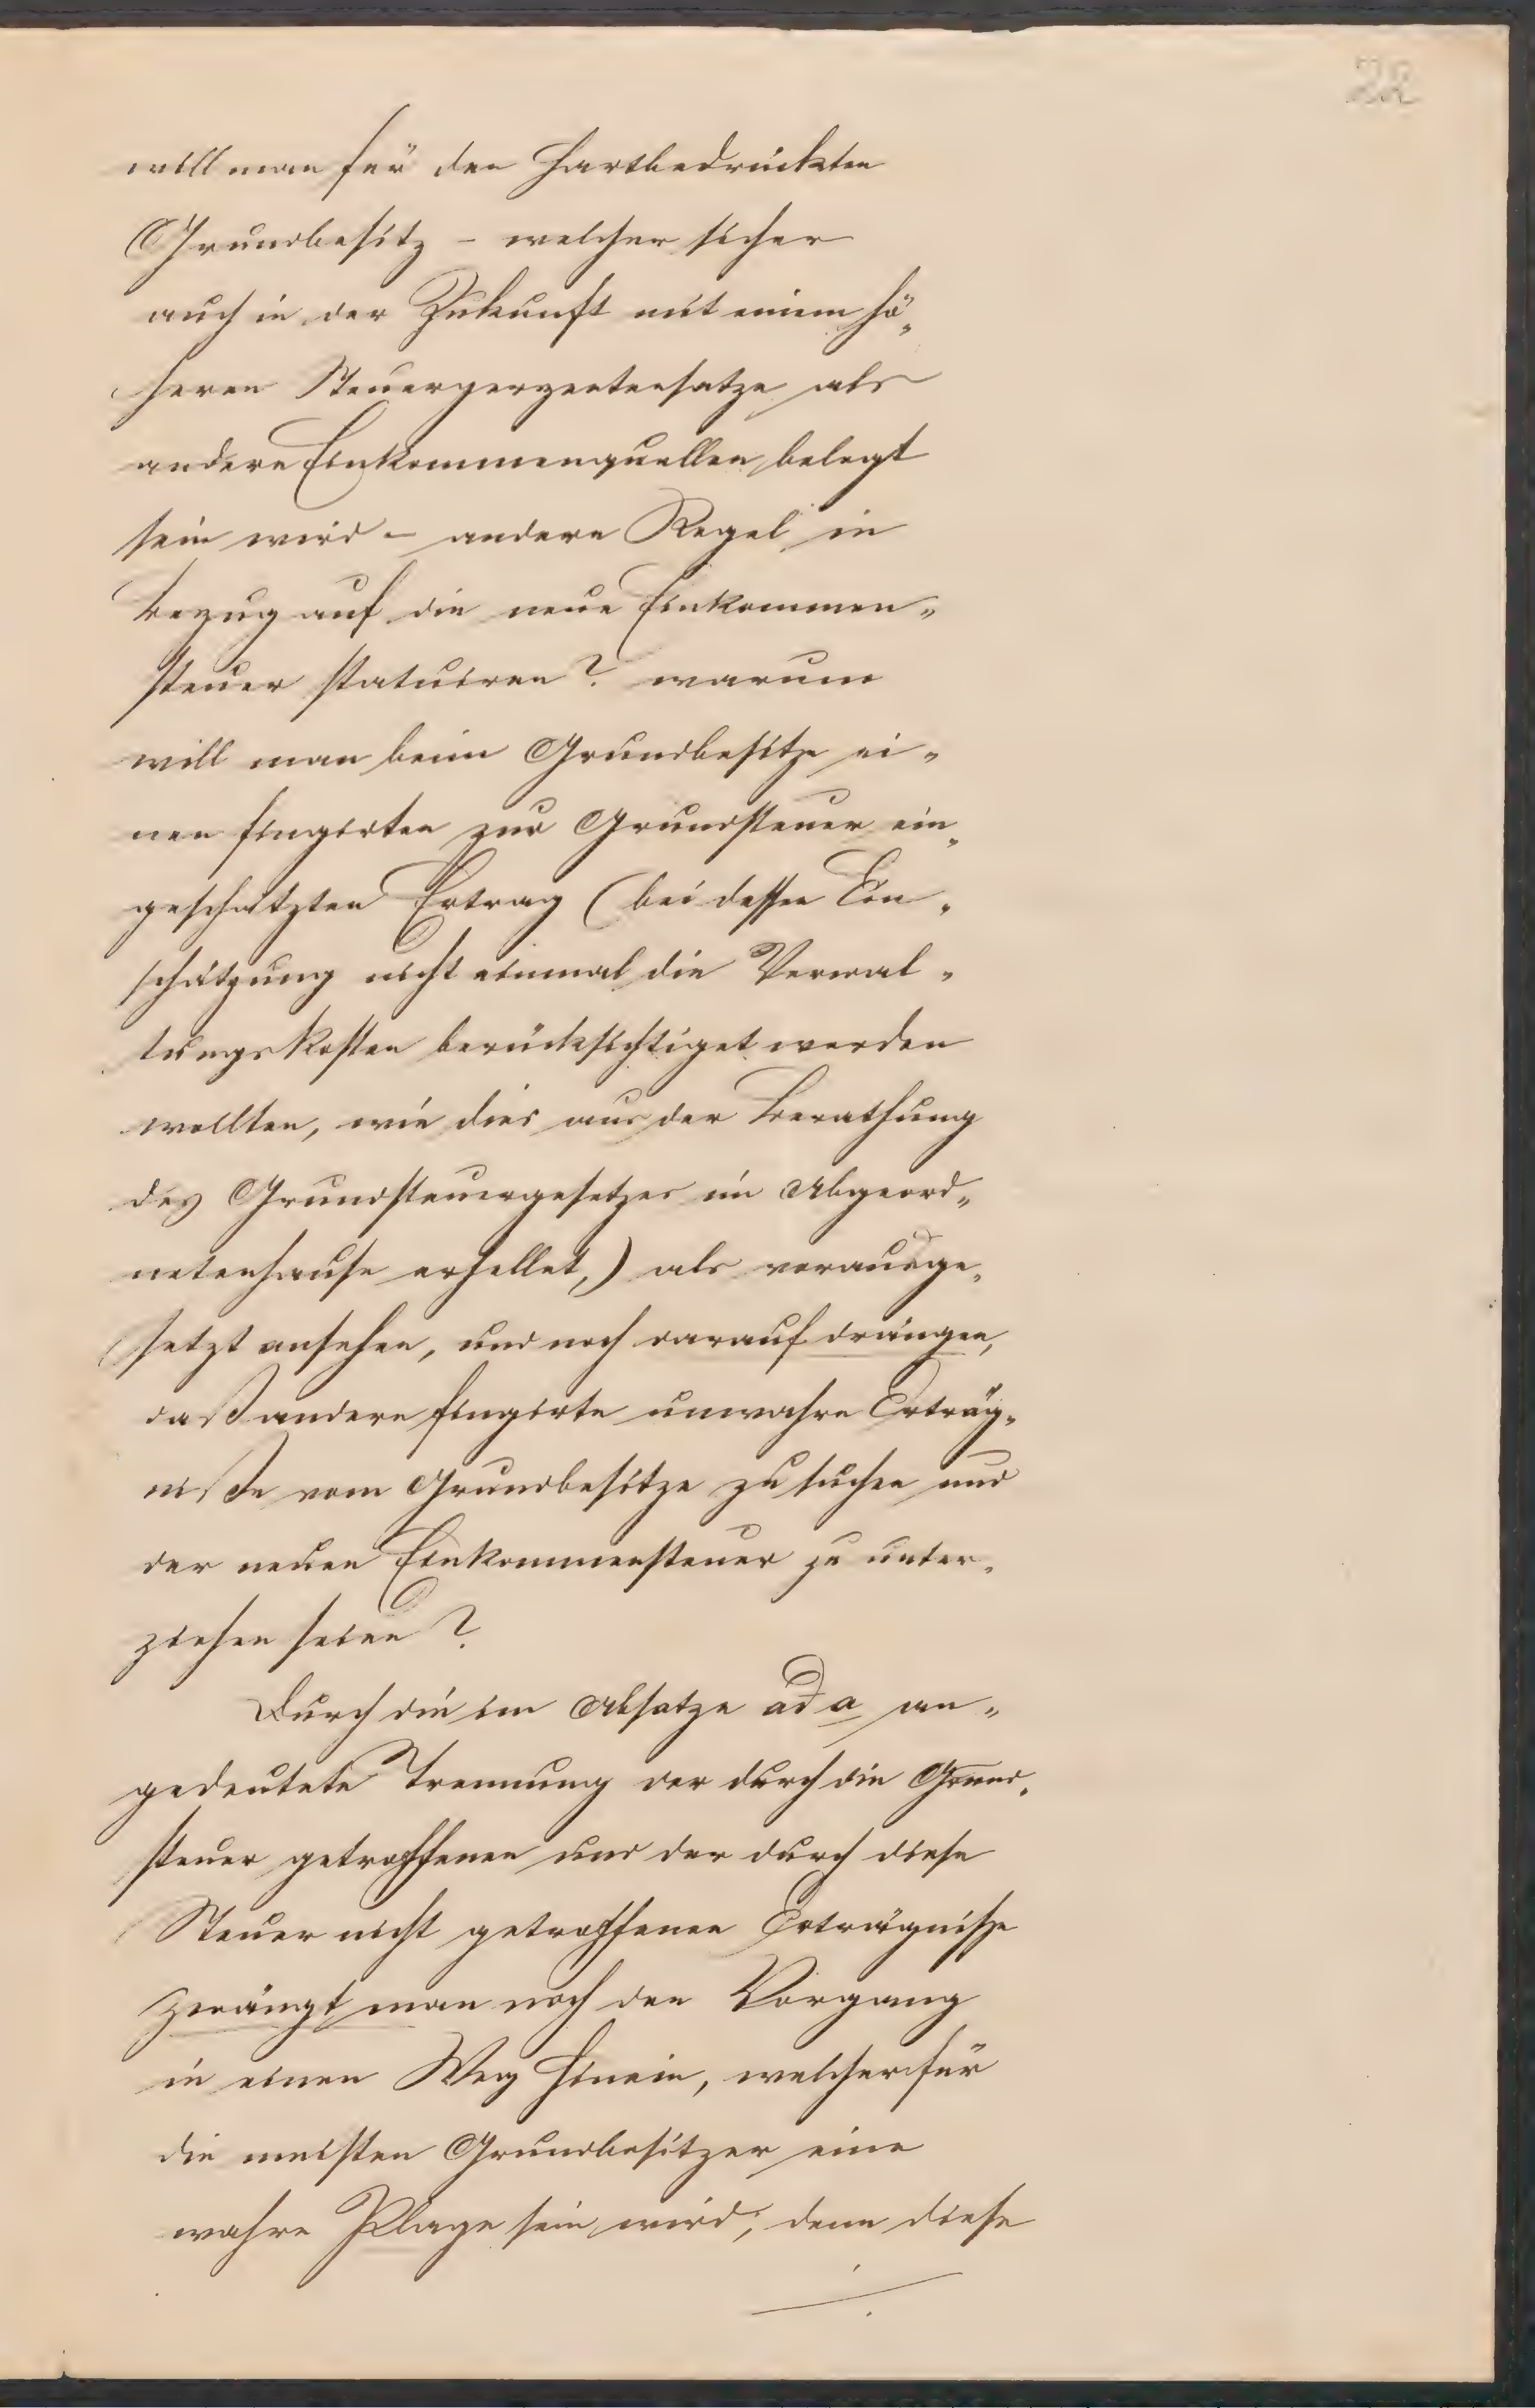 22
will man für den hartbedrückten
Grundbesitz – welcher sicher
auch in der Zukunft mit einem hö„
heren Steuerperzentensatze als
andere Einkommenquellen belegt
sein wird – andere Regel in
Bezug auf die neue Einkommen„
steuer statuiren? warum
will man beim Grundbesitze ei„
nen fingirten zur Grundsteuer ein„
geschätzten Ertrag (bei dessen Ein„
schätzung nicht einmal die Verwal„
tungskosten berücksichtiget werden
wollten, wie dies aus der Berathung
des Grundsteuergesetzes im Abgeord„
netenhause erhellet,) als vorausge„
setzt ansehen, und noch darauf drängen,
daß andere fingirte unwahre Erträg„
niße vom Grundbesitze zu suchen und
der neuen Einkommensteuer zu unter„
ziehen seien?
Durch die im Absatze ad a an„
gedeutete Trennung der durch die Grund„
steuer getroffenen und der durch diese
Steuer nicht getroffenen Erträgnisse
zwängt man noch den Vorgang
in einen Weg hinein, welcher für
die meisten Grundbesitzer eine
wahre Plage sein wird; denn diese
./.